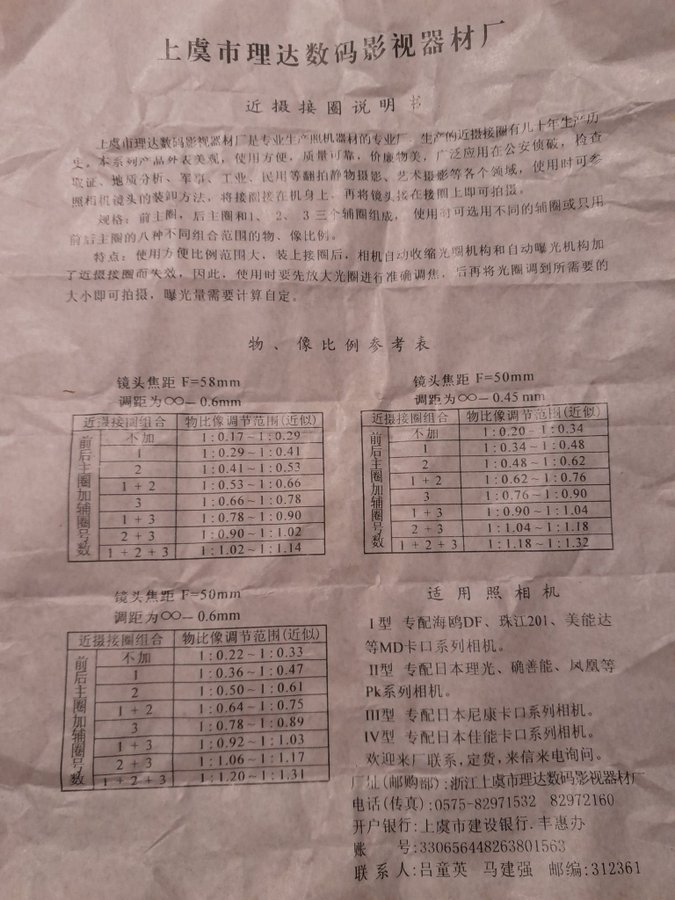 上虞市理达数码影视器材厂
近摄接圈说明书
上虞市理达数码影视器材厂是专业生产照机器材的专业厂，生产的近摄接圈有几十年生产历
史。本系列产品外表美观，使用方便，质量可靠，价廉物美，广泛应用在公安侦破，检查
取证、地质分析、军事、工业、民用等翻拍静物摄影、艺术摄影等各个领域，使用时可参
照相机镜头的装卸方法，将接圈接在机身上，再将镜头接在接圈上即可拍摄。
规格：前主圈，后主圈和1、2、3三个辅圈组成，使用时可选用不同的辅圈或只用
前后主圈的八种不同组合范围的物、像比例。
特点：使用方便比例范围大，装上接圈后，相机自动收缩光圈机构和自动曝光机构加
了近摄接圈而失效，因此，使用时要先放大光圈进行准确调焦，后再将光圈调到所需要的
大小即可拍摄，曝光量需要计算自定。
物、像比例参考表
镜头焦距 F=58mm
调距为∞—0.6mm
近摄接圈组合 物比像调节范围(近似)
前后主圈加辅圈号数
不加 1:0.17~1:0.29
1 1:0.29~1:0.41
2 1:0.41~1:0.53
1+2 1:0.53~1:0.66
3 1:0.66~1:0.78
1+3 1:0.78~1:0.90
2+3 1:0.90~1:1.02
1+2+3 1:1.02~1:1.14
镜头焦距 F=50mm
调距为∞—0.45mm
近摄接圈组合 物比像调节范围(近似)
前后主圈加辅圈号数
不加 1:0.20~1:0.34
1 1:0.34~1:0.48
2 1:0.48~1:0.62
1+2 1:0.62~1:0.76
3 1:0.76~1:0.90
1+3 1:0.90~1:1.04
2+3 1:1.04~1:1.18
1+2+3 1:1.18~1:1.32
镜头焦距 F=50mm
调距为∞—0.6mm
近摄接圈组合 物比像调节范围(近似)
前后主圈加辅圈号数
不加 1:0.22~1:0.33
1 1:0.36~1:0.47
2 1:0.50~1:0.61
1+2 1:0.64~1:0.75
3 1:0.78~1:0.89
1+3 1:0.92~1:1.03
2+3 1:1.06~1:1.17
1+2+3 1:1.20~1:1.31
适用照相机
I型 专配海鸥DF、珠江201、美能达
等MD卡口系列相机。
II型 专配日本理光、确善能、凤凰等
Pk系列相机。
III型 专配日本尼康卡口系列相机。
IV型 专配日本佳能卡口系列相机。
欢迎来厂联系,定货,来信来电询问。
厂址(邮购部):浙江上虞市理达数码影视器材厂
电话(传真):0575-82971532 82972160
开户银行:上虞市建设银行.丰惠办
账 号:330656448263801563
联系人:吕童英 马建强 邮编:312361